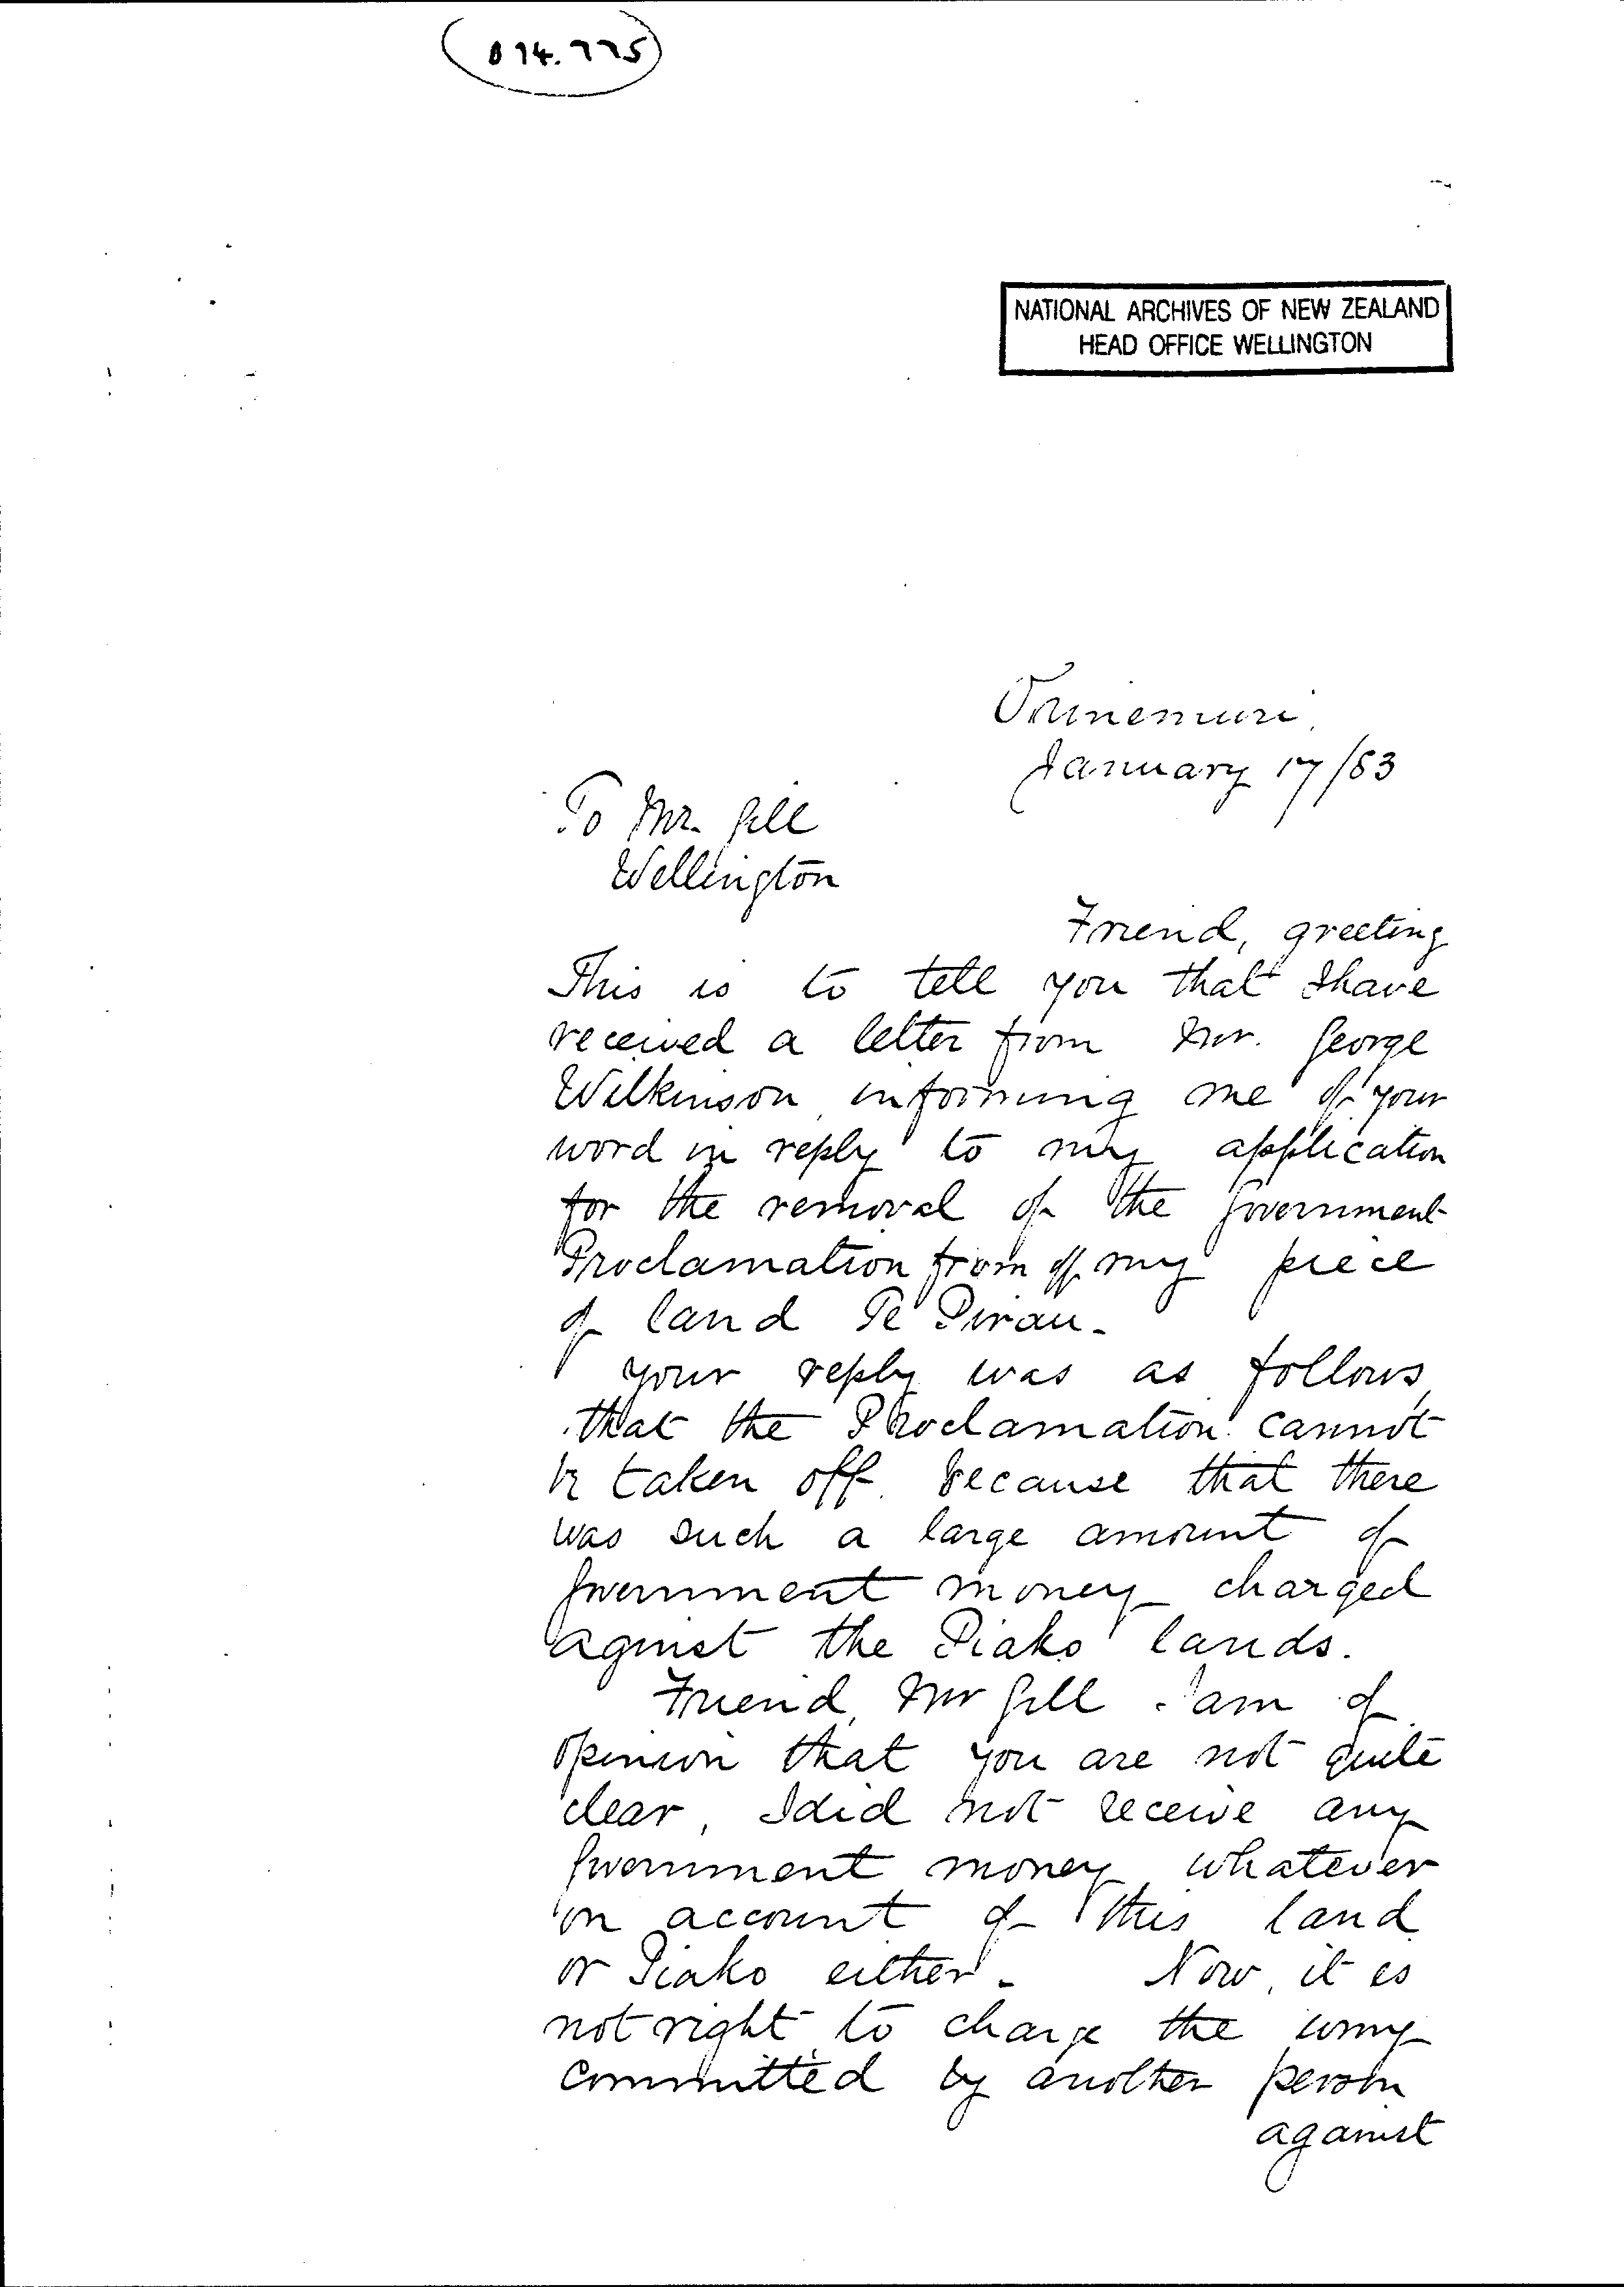 B 14. 775
NATIONAL ARCHIVES OF NEW ZEALAND
HEAD OFFICE WELLINGTON
Ohinemuri.
January 17/83
To Mr. Gill
Wellington
Friend, greeting
This is to tell you that I have
received a letter from Mr. George
Wilkinson informing me of your
word in reply to my application
for the removal of the Government
Proclamation from off my piece
of land Te Pirau.
your reply was as follows,
that the Proclamation cannot
be taken off because that there
was such a large amount of
Government money charged
aginst the Piako lands.
Friend, Mr Gill I am of
opinion that you are not quite
clear, I did not receive any
Government money whatever
on account of this land
or Piako either. Now, it is
not right to charge the wrong
committed by another person
against